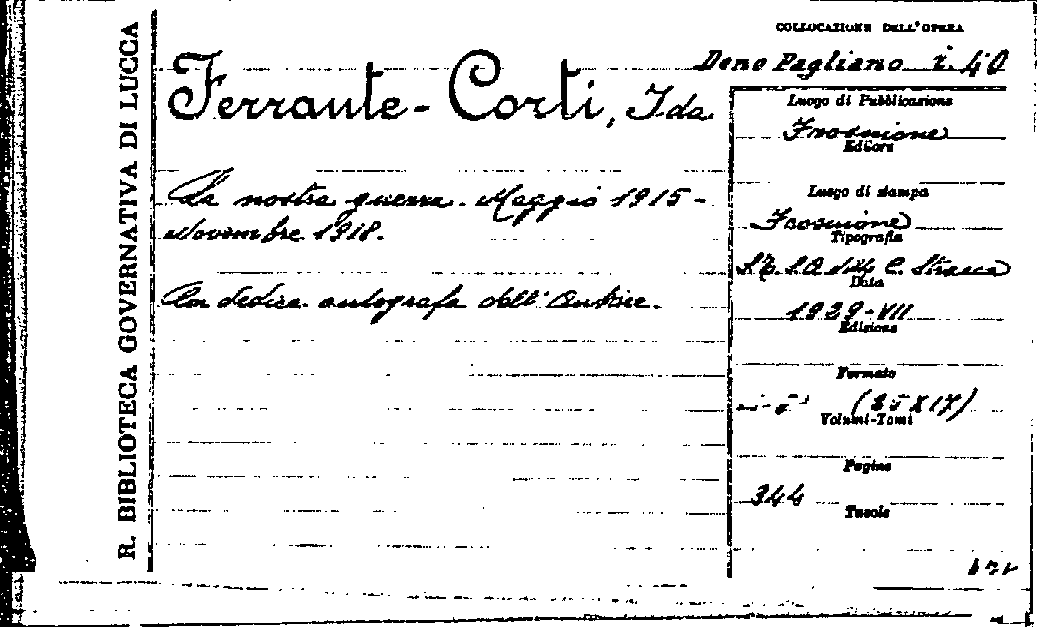 R. BIBLIOTECA GOVERNATIVA DI LUCCA
COLLOCAZIONE DELL'OPERA
Dono Pagliano i. 40
Ferrante-Corti, Ida
La nostra guerra. Maggio 1915-
Novembre 1918.
Con dedica autografa dell'Autore.
Luogo di Pubblicazione
Frosinone
Editore
Luogo di stampa
Frosinone
Tipografia
C. Stracca
Data
1929-VII
Edizione
Formato
in-8° (25X17)
Volumi-Tomi
Pagine
344
Tavole